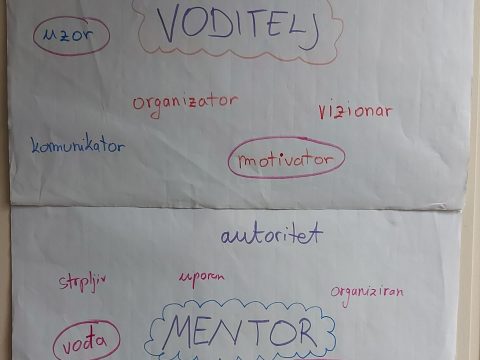 VODITELJ
uzor
organizator
vizionar
komunikator
motivator
autoritet
strpljiv uporan
organiziran
vođa
MENTOR